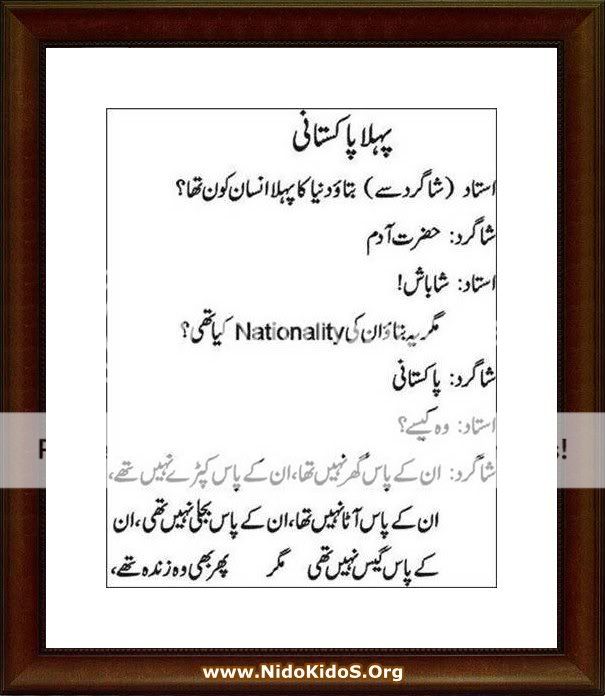 پہلا پاکستانی
استاد (شاگرد سے) بتاؤ دنیا کا پہلا انسان کون تھا؟
شاگرد: حضرت آدم
استاد: شاباش!
مگر یہ بتاؤ ان کی Nationality کیا تھی؟
شاگرد: پاکستانی
استاد: وہ کیسے؟
شاگرد: ان کے پاس گھر نہیں تھا، ان کے پاس کپڑے نہیں تھے،
ان کے پاس آٹا نہیں تھا، ان کے پاس بجلی نہیں تھی، ان
کے پاس گیس نہیں تھی مگر پھر بھی وہ زندہ تھے،
www.NidoKidoS.Org